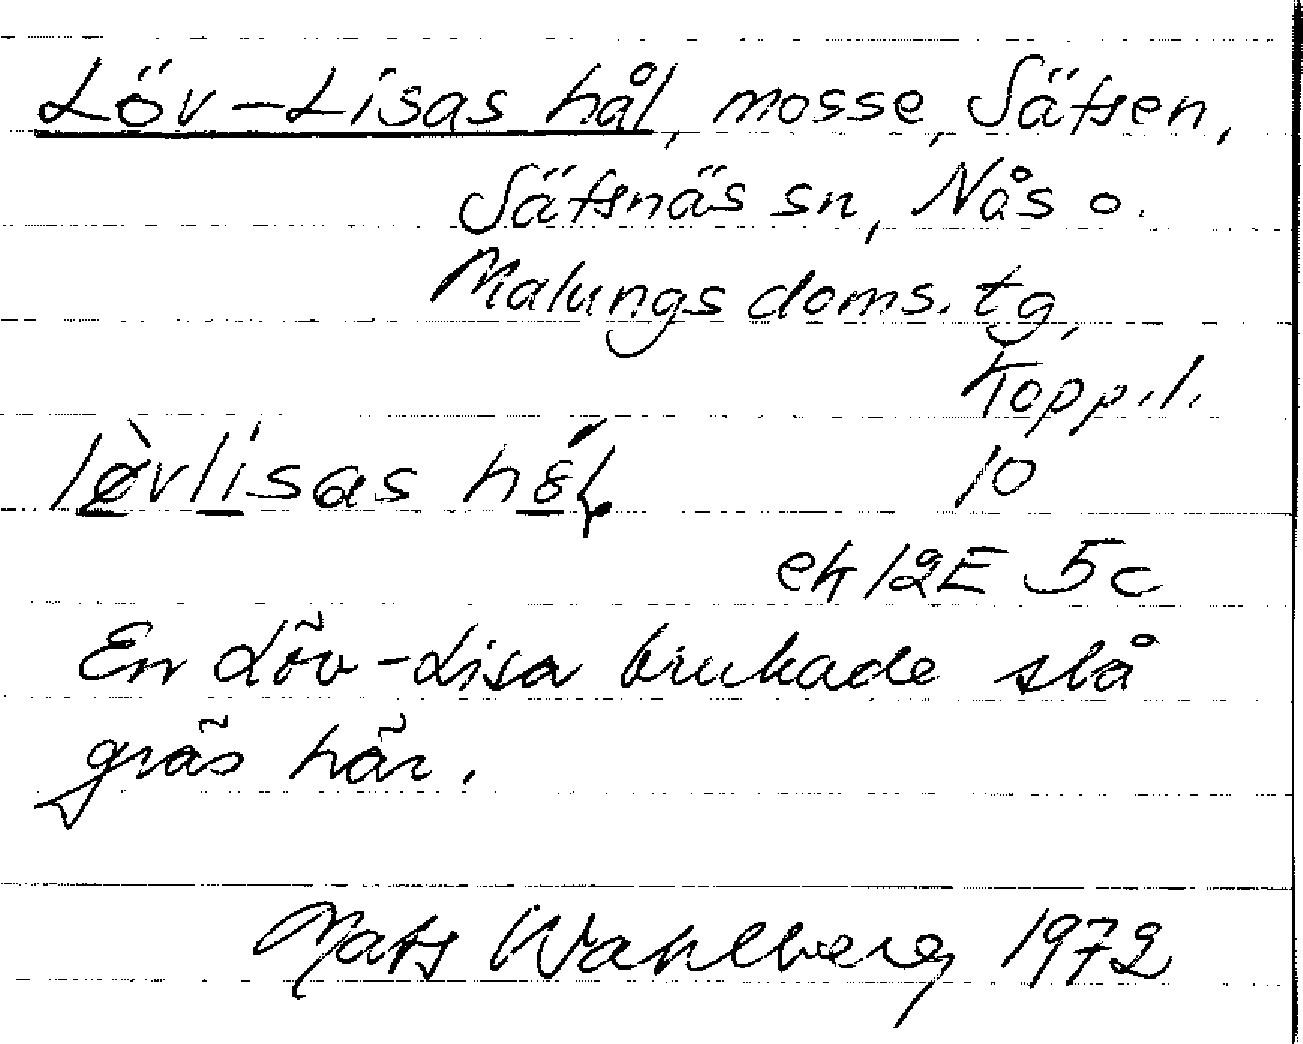 Löv-Lisas hål, mosse, Säfsen,
Säfsnäs sn, Nås o.
Malungs doms. tg,
Kopp.l.
10
ek 12E 5c
En Löv-Lisa brukade slå
gräs här.
Mats Wahlberg 1972